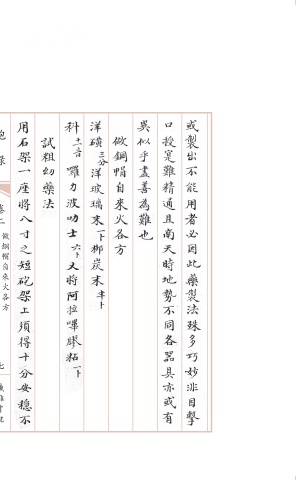 或製出不能用者必因此藥製法殊多巧妙非目擊
口授寔難精通且南天時地勢不同各器具亦或有
吳似乎盡善為難也
做銅帽自來火各方
洋磺三分洋玻璃末一卜梛炭末半卜
科十一音囉力波叻士六卜又將阿拉嗶膠粘一卜
試粗幼藥法
用石架一座將八寸之短砲架工須得十分安穩不
卷二
做銅帽自來火各方
七